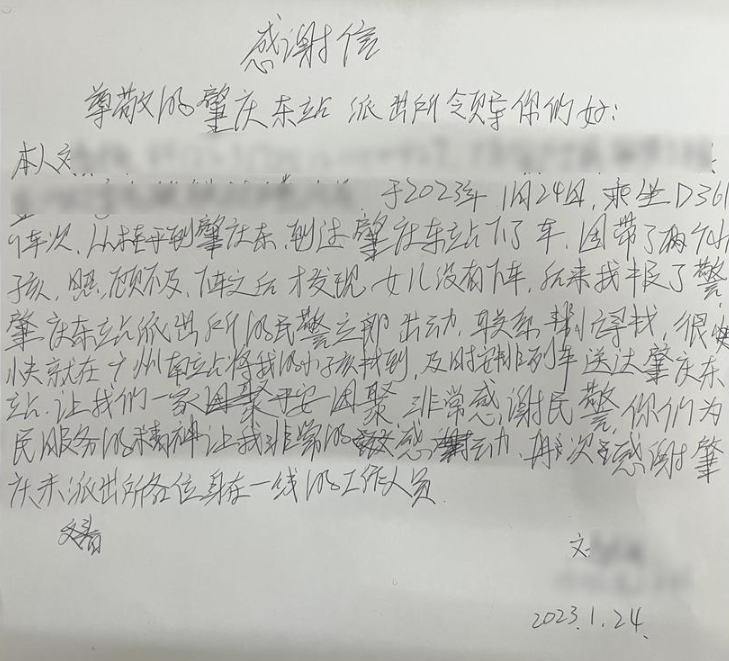 感谢信
尊敬的肇庆东站派出所领导你们好:
本人文
于2023年1月24日,乘坐D361
车次,从桂平到肇庆东,到达肇庆东站下了车,因带了两个小
孩,照顾不及,下车之后才发现女儿没有下车,后来我报了警,
肇庆东站派出所的民警立即出动,联系帮忙寻找,很快
快就在广州南站将我的小孩找到,及时安排列车送达肇庆东
站.让我们一家平安团聚 非常感谢民警,你们为
民服务的精神让我非常的感动.再次感谢肇
庆东派出所各位身在一线的工作人员.
文
2023.1.24.